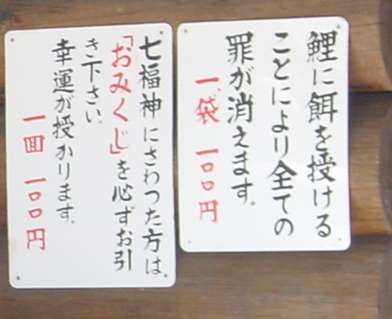 鯉に餌を授ける
ことにより全ての
罪が消えます。
一袋 一〇〇円
七福神にさわった方は
「おみくじ」を必ずお引
き下さい。
幸運が授かります。
一回 一〇〇円